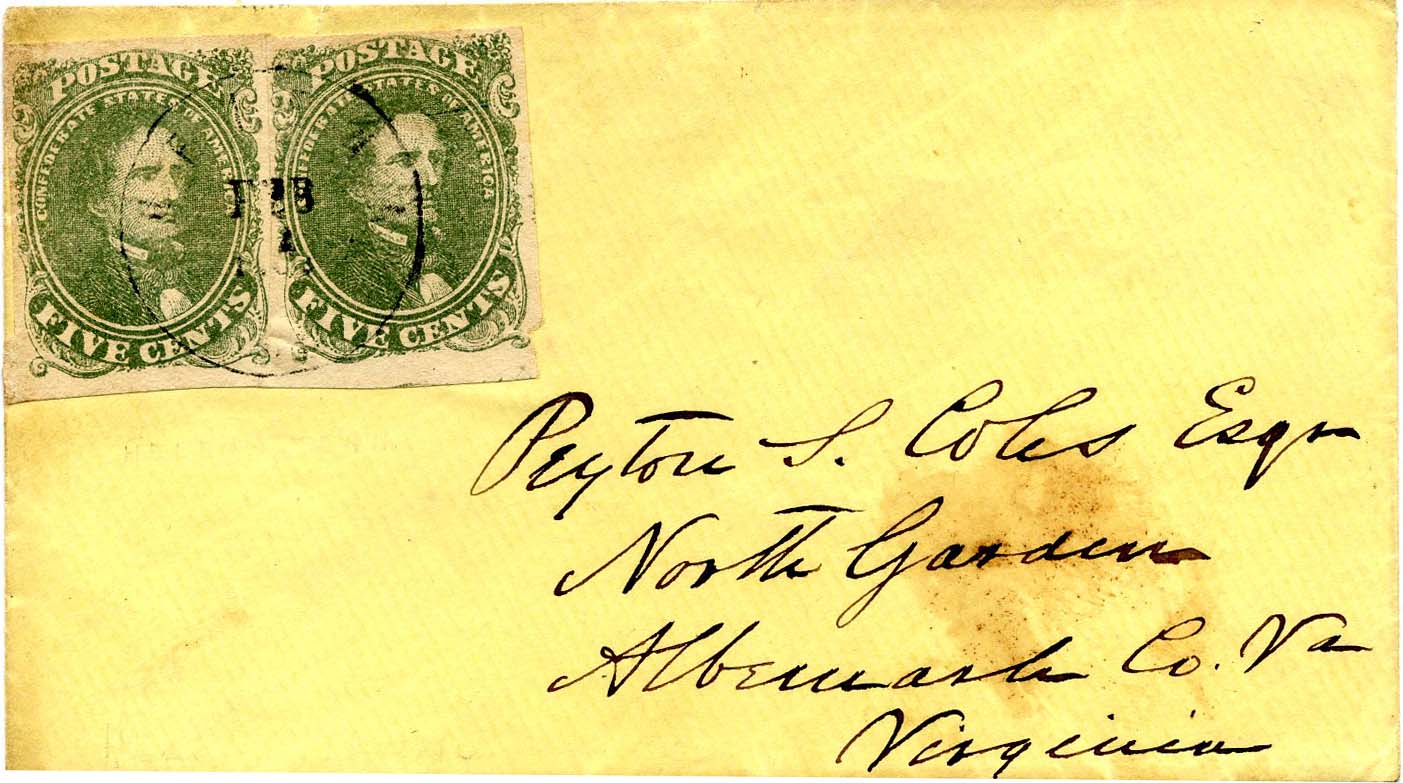 POSTAGE
CONFEDERATE STATES OF AMERICA
FIVE CENTS
POSTAGE
CONFEDERATE STATES OF AMERICA
FIVE CENTS
FEB
Peyton S. Coles Esqr
North Garden
Albemarle Co. Va
Virginia